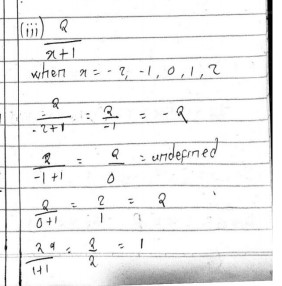 (iii) 2/x+1
when x = -2, -1, 0, 1, 2
2/-2+1 = 2/-1 = -2
2/-1+1 = 2/0 = undefined
2/0+1 = 2/1 = 2
2/1+1 = 2/2 = 1